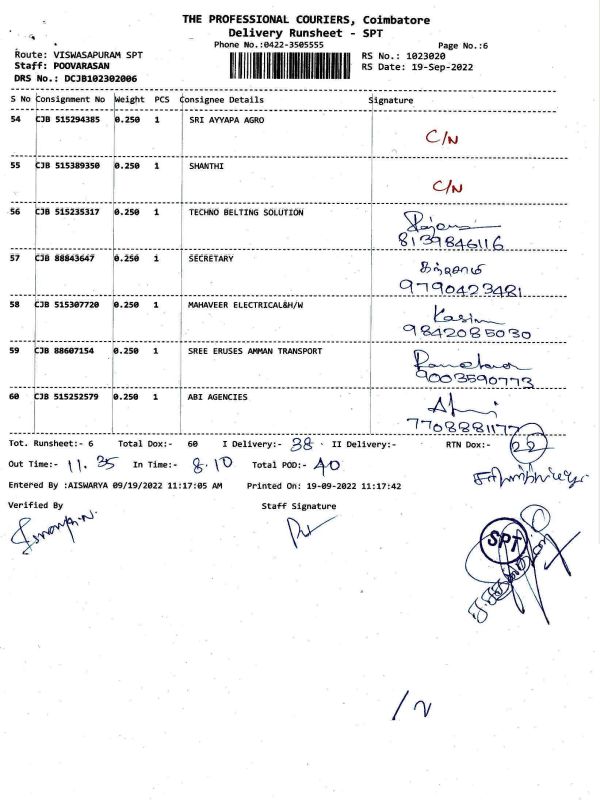 THE PROFESSIONAL COURIERS, Coimbatore
Delivery Runsheet - SPT
Phone No.:0422-3505555 Page No.:6
Route: VISWASAPURAM SPT RS No.: 1023020
Staff: POOVARASAN RS Date: 19-Sep-2022
DRS No.: DCJB102302006
S No Consignment No Weight PCS Consignee Details Signature
54 CJB 515294385 0.250 1 SRI AYYAPA AGRO
C/N
55 CJB 515389350 0.250 1 SHANTHI
C/N
56 CJB 515235317 0.250 1 TECHNO BELTING SOLUTION
8139846116
57 CJB 88843647 0.250 1 SECRETARY
9790423481
58 CJB 515307720 0.250 1 MAHAVEER ELECTRICAL&H/W Kasim
9842085030
59 CJB 88607154 0.250 1 SREE ERUSES AMMAN TRANSPORT
9003590773
60 CJB 515252579 0.250 1 ABI AGENCIES
7708881177
Tot. Runsheet:- 6 Total Dox:- 60 I Delivery:- 38 II Delivery:- RTN Dox:- 22
Out Time:- 11.35 In Time:- 8.10 Total POD:- 40
Entered By :AISWARYA 09/19/2022 11:17:05 AM Printed On: 19-09-2022 11:17:42
Verified By Staff Signature
SPT